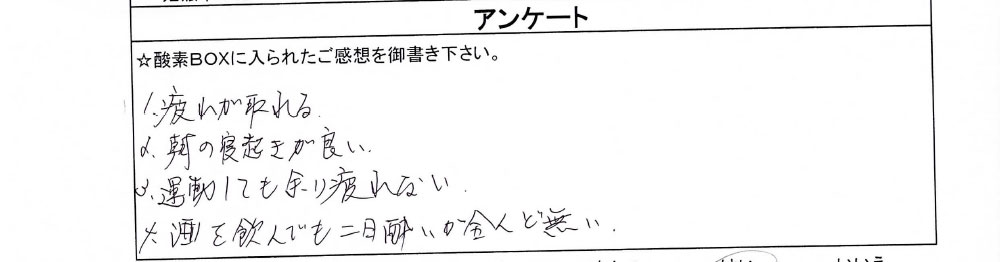 アンケート
☆酸素BOXに入られたご感想を御書き下さい。
1. 疲れが取れる.
2. 朝の寝起きが良い.
3. 運動しても余り疲れない.
4. 酒を飲んでも二日酔いが全んど無い.